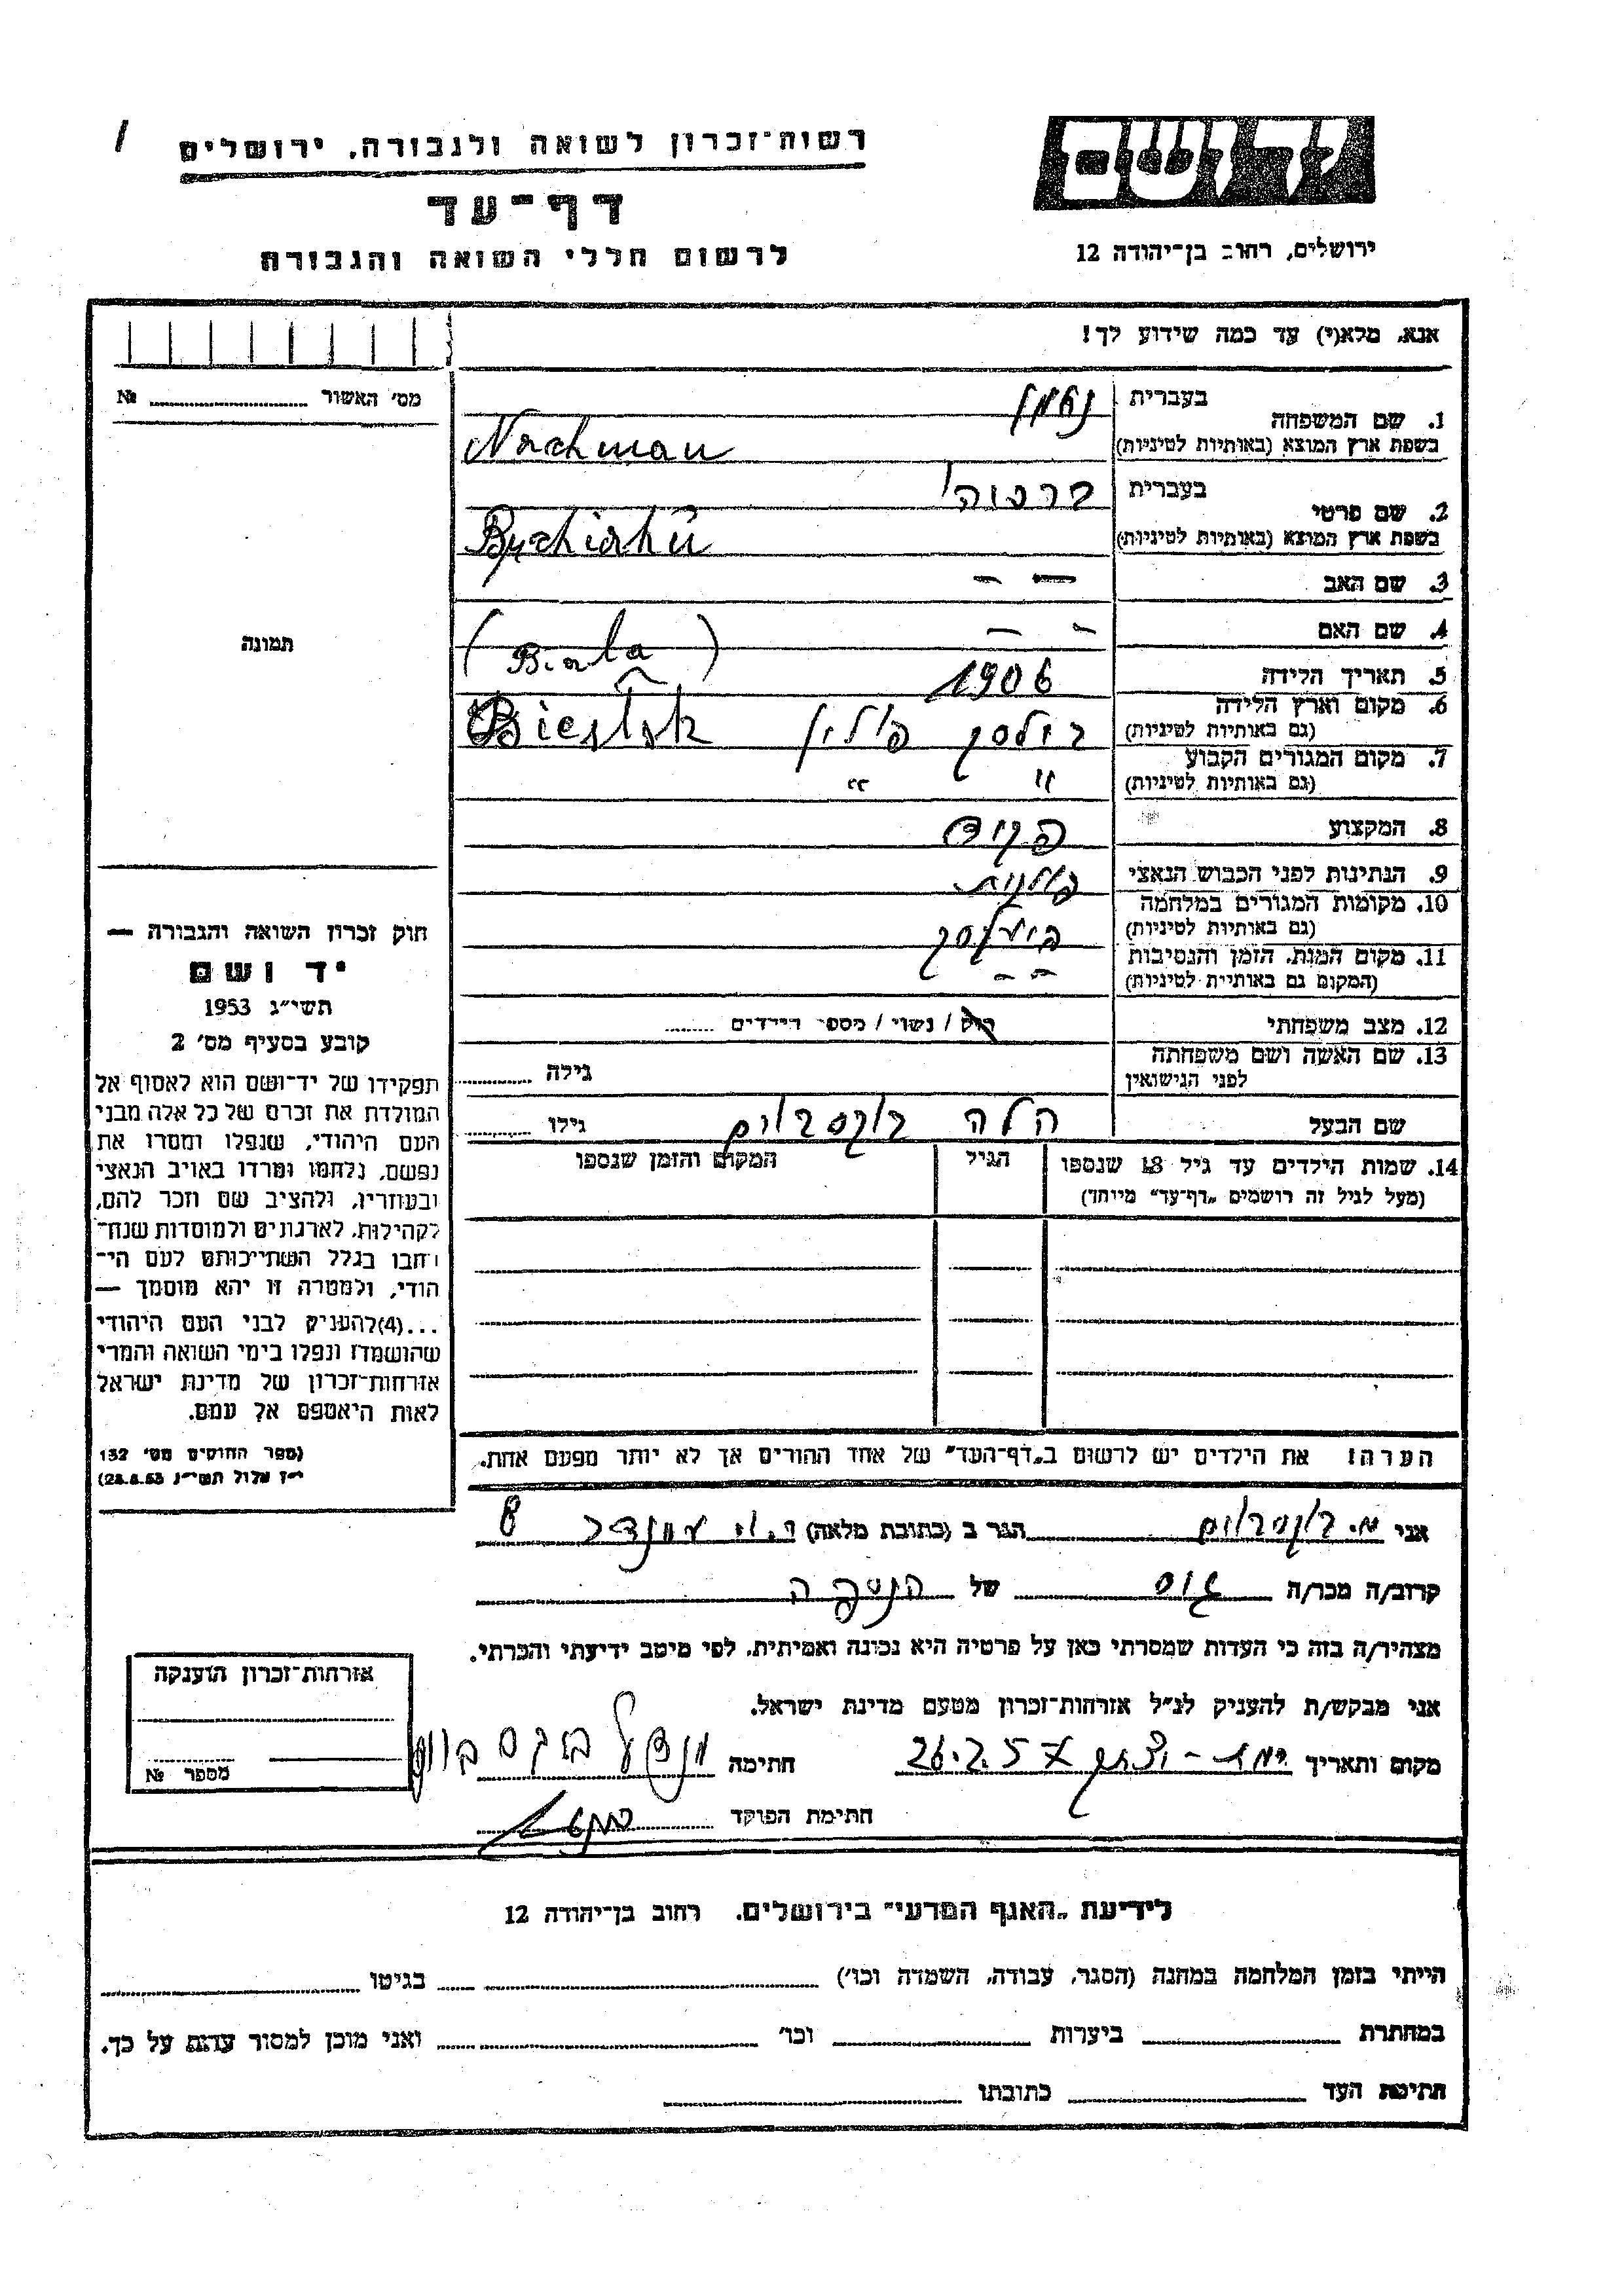 1
רשות־זכרון לשואה ולגבורה, ירושלים
דף־עד
לרשום חללי השואה והגבורה
יד ושם
ירושלים, רחוב בן־יהודה 12
אנא, מלא(י) עד כמה שידוע לך!
מס׳ האשור № 
תמונה
חוק זכרון השואה והגבורה —
יד ושם
תשי״ג 1953
קובע בסעיף מס׳ 2
תפקידו של יד־ושם הוא לאסוף אל
המולדת את זכרם של כל אלה מבני
העם היהודי, שנפלו ומסרו את
נפשם, נלחמו ומרדו באויב הנאצי
ובעוזריו, ולהציב שם וזכר להם,
לקהילות, לארגונים ולמוסדות שנח־
רבו בגלל השתייכותם לעם הי־
הודי, ולמטרה זו יהא מוסמך —
...(4) להעניק לבני העם היהודי
שהושמדו ונפלו בימי השואה והמרי
אזרחות־זכרון של מדינת ישראל
לאות היאספם אל עמם.
(ספר החוקים מס׳ 132
י״ז אלול תשי״ג 28.8.53)
1. שם המשפחה בעברית נחמן
בשפת ארץ המוצא (באותיות לטיניות) Nachman
2. שם פרטי בעברית
בשפת ארץ המוצא (באותיות לטיניות)
3. שם האב — —
4. שם האם — —
5. תאריך הלידה 1906 (Biala)
6. מקום וארץ הלידה פולין
(גם באותיות לטיניות)
7. מקום המגורים הקבוע " "
(גם באותיות לטיניות)
8. המקצוע פקיד
9. הנתינות לפני הכבוש הנאצי פולנית
10. מקומות המגורים במלחמה
(גם באותיות לטיניות)
11. מקום המות, הזמן והנסיבות — —
(המקום גם באותיות לטיניות)
12. מצב משפחתי רווק / נשוי / מספר הילדים
13. שם האשה ושם משפחתה גילה
לפני הנישואין
שם הבעל הלה בוקסבוים גילו
14. שמות הילדים עד גיל 18 שנספו הגיל המקום והזמן שנספו
(מעל לגיל זה רושמים „דף־עד״ מיוחד)
הערה: את הילדים יש לרשום ב„דף־העד״ של אחד ההורים אך לא יותר מפעם אחת.
אני מ. בוקסבוים הגר ב (כתובת מלאה) 8
קרוב/ה מכר/ה גיס של הנספה
מצהיר/ה בזה כי העדות שמסרתי כאן על פרטיה היא נכונה ואמיתית, לפי מיטב ידיעתי והכרתי.
אני מבקש/ת להעניק לנ״ל אזרחות־זכרון מטעם מדינת ישראל.
מקום ותאריך 26.2.57 חתימה מנדל בוגסבוים
חתימת הפוקד
אזרחות־זכרון הוענקה
מספר №
לידיעת „האגף המדעי״ בירושלים, רחוב בן־יהודה 12
הייתי בזמן המלחמה במחנה (הסגר, עבודה, השמדה וכו׳) בגיטו
במחתרת ביערות וכו׳ ואני מוכן למסור עדות על כך.
חתימת העד כתובתו